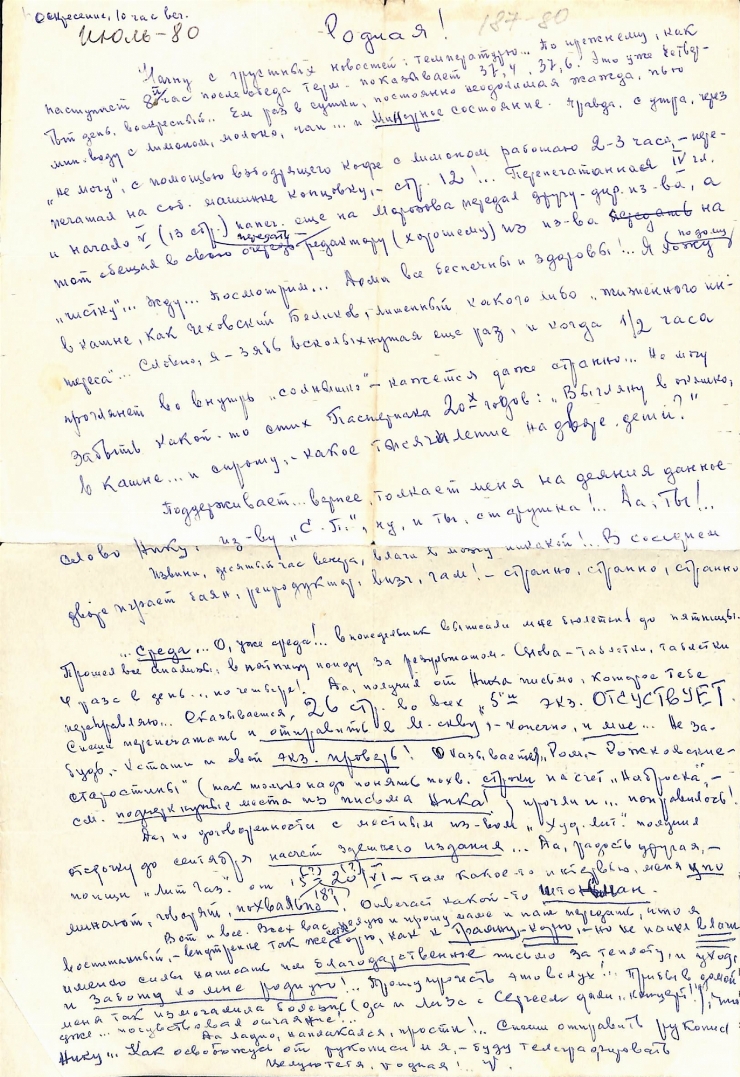 Воскресенье, 10 час веч.
Июль-80
187-80
Родная!
Начну с грустных новостей: температурю... По прежнему, как
наступает 8й час после обеда терм. показывает 37,4, 37,6. Это уже
день, воскресный... Ем раз в сутки, постоянно неодолимая жажда, пью
мин. воду с лимоном, молоко, чай... и минорное состояние. Правда, с утра, через
„не могу", с помощью взбодрящего кофе с лимоном работаю 2-3 часа, – пере-
печатал на соб. машинке концовку, – стр. 12!... Перепечатанная IV гл.
и начало V (13 стр.) еще на Морозова передал другу – дир. из-ва, а
тот обещал в свою очередь передать редактору (хорошему) из из-ва на
„чистку"... Жду... Посмотрим... Дома все беспечны и здоровы!... Я хожу (по дому)
в кашне, как Чеховский Беликов, лишенный какого либо „жизненного ин-
тереса"... Словно, я – зябь всколыхнутая еще раз, и когда 1/2 часа
проглянет во внутрь „солнышко" – кажется даже странно... Не могу
забыть какой-то стих Пастернака 20х годов: „Выгляну в окошко,
в кашне... и спрошу, – какое тысячелетие на дворе, дети?"
Поддерживает... вернее, толкает меня на деяния данное
слово Нику, из-ву „С.П.", ну, и ты, старушка!... Да, Ты!...
Извини, десятый час вечера, влаги в мозгу никакой!... В соседнем
дворе играет баян, репродуктор, визг, гам! – странно, странно, странно
... Среда... О, уже среда!... В понедельник выписали мне бюлетень до пятницы.
Прошел все анализы, в пятницу пойду за результатом. Снова – таблетки, таблетки
4 раза в день..., по четыре! Да, получил от Ника письмо, которое тебе
переправляю... Оказывается, 26 стр. во всех „5и экз. ОТСУСТВУЕТ.
Спеши перепечатать и отправить в М-скву, – конечно, и мне... Не за-
будь. Кстати и свой экз. проверь! Оказывается, „Ром. – Рожковские –
старостины" (так только надо понять похв. строки на счет „Наброска", –
см. подчеркнутые места из письма Ника!) прочли и... понравилось!
Да, по договоренности с местным из-вом „Худ. лит." получил
отсрочку до сентября насчет здешнего издания... Да, радость другая, –
поищи „Лит газ." от 15 (?) – 20 (?) VI – там какое-то интервью, меня упо
18?
минают, говорят, похвально!. Отвечает какой-то
Вот и все. Всех вас целую и прошу маме и папе передать, что я
воспитанный, – внутренне так же как к но не нашел влаги
именно силы написать им благодарственное письмо за теплоту, и уход,
и заботу ко мне родную!... Прочитать это вслух!... Прибыв домой
меня так измочалила болезнь (да и Лиза с Сергеем дали „концерт!"), что
уже... почувствовал отчаяние!...
Да ладно, наплакался, прости!... Спеши отправить рукопись
Нику... Как освобожусь от рукописи я, – буду телеграфировать
Целую тебя, родная!